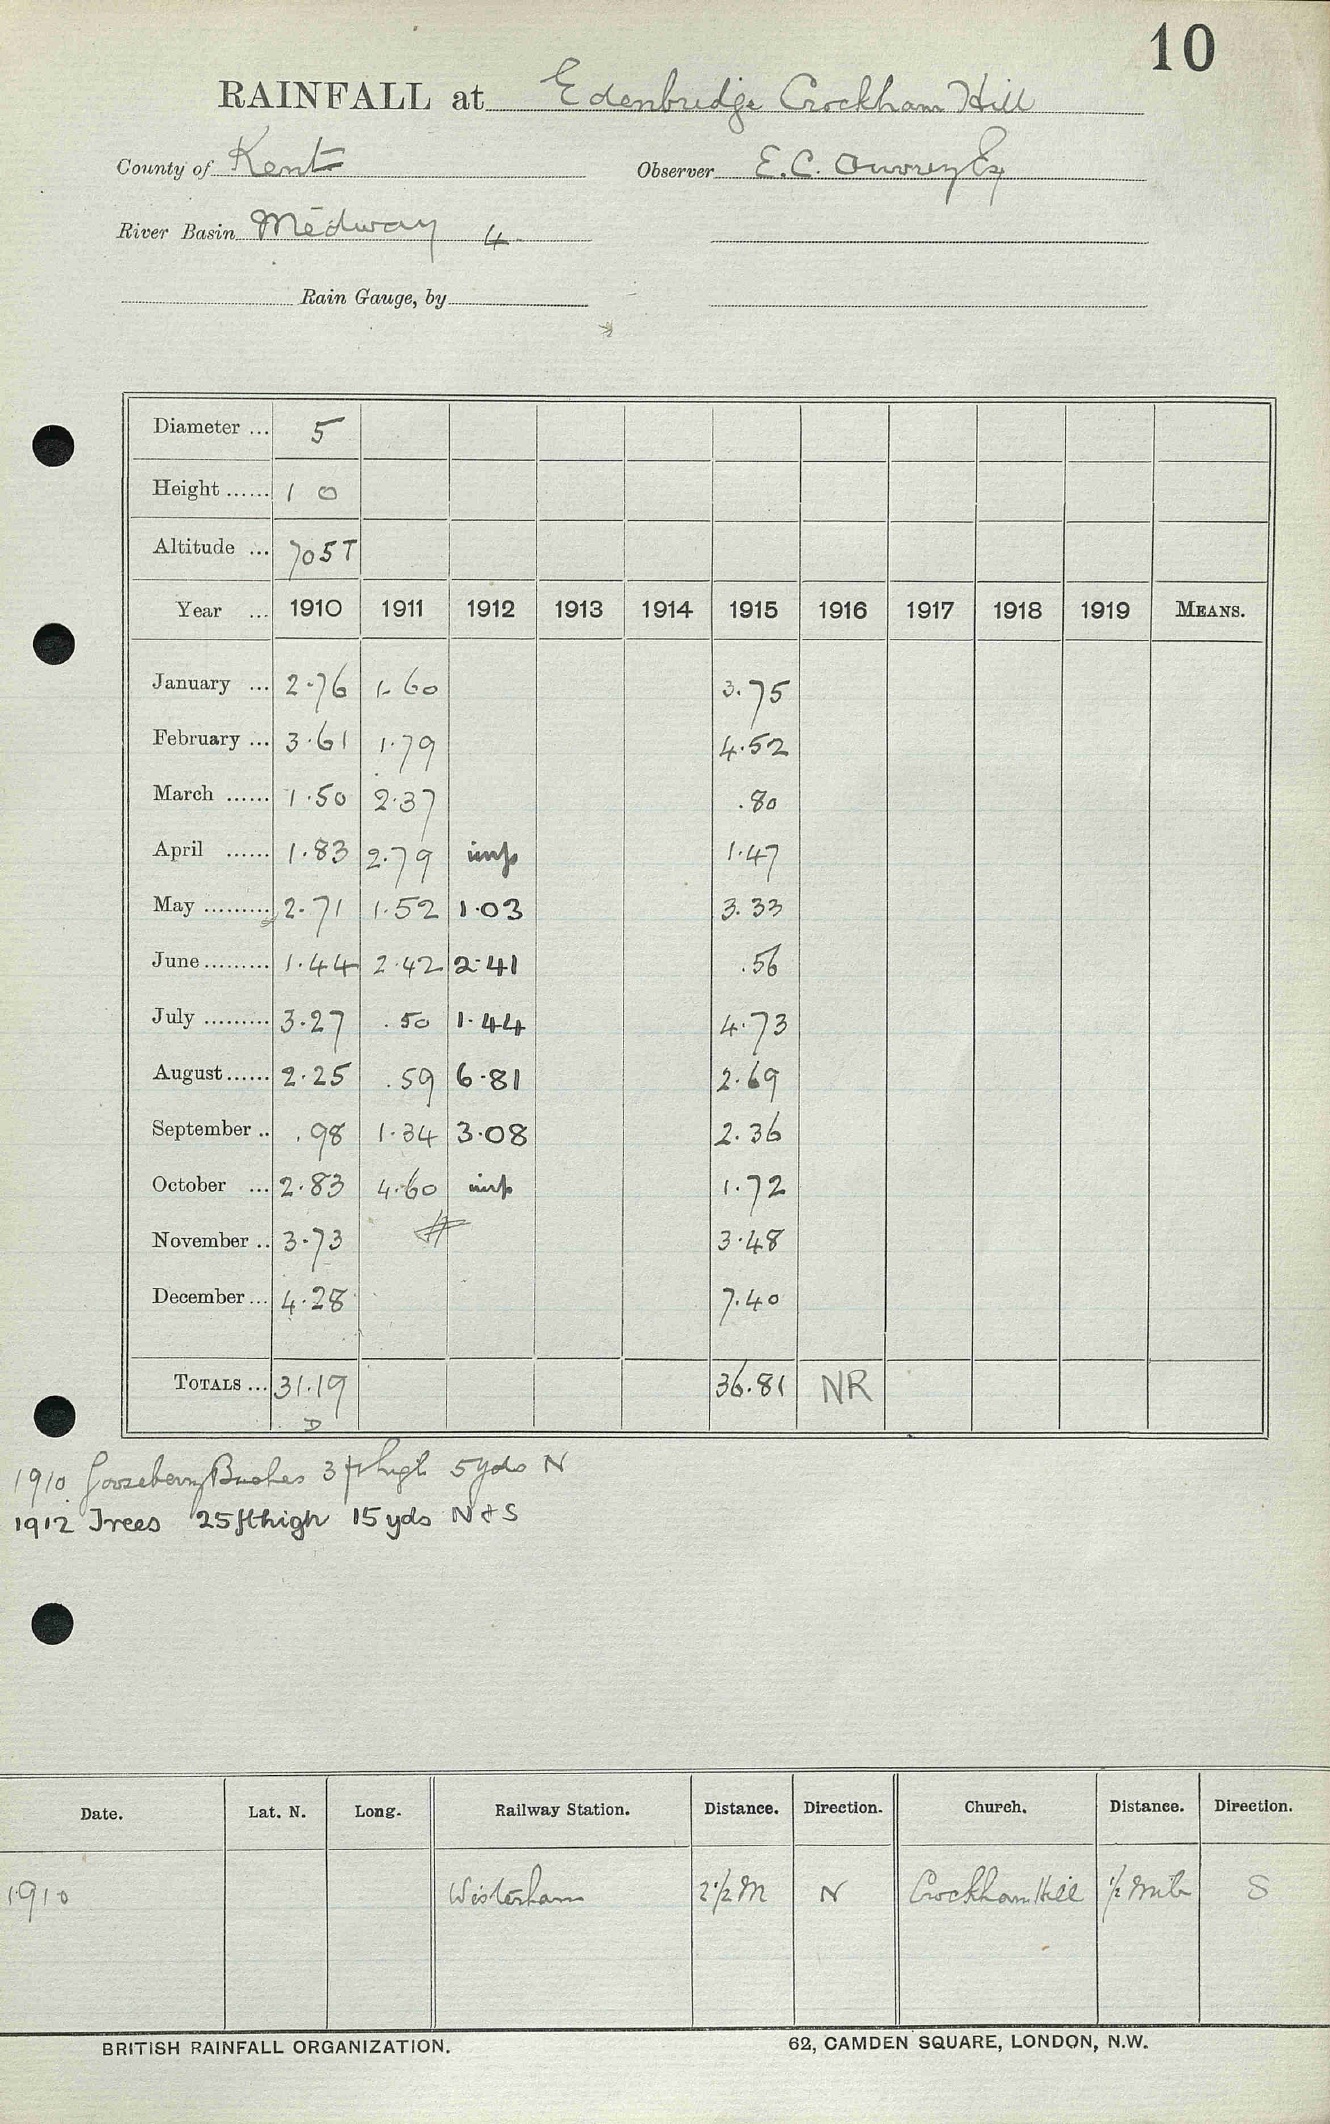 10
RAINFALL at Edenbridge Crockham Hill
County of Kent Observer E.C. Ouvry Esq
River Basin Medway 4
Rain Gauge, by
Diameter ... 5
Height ...... 1 0
Altitude ... 705T
Year ... 1910 1911 1912 1913 1914 1915 1916 1917 1918 1919 MEANS.
January ... 2.76 1.60 3.75
February ... 3.61 1.79 4.52
March ...... 1.50 2.37 .80
April ...... 1.83 2.79 imp 1.47
May ......... 2.71 1.52 1.03 3.33
June ......... 1.44 2.42 2.41 .56
July ......... 3.27 .50 1.44 4.73
August ...... 2.25 .59 6.81 2.69
September .. .98 1.34 3.08 2.36
October ... 2.83 4.60 imp 1.72
November .. 3.73 3.48
December ... 4.28 7.40
TOTALS ... 31.19 36.81 NR
D
1910 Gooseberry Bushes 3 ft high 5 yds N
1912 Trees 25 ft high 15 yds N & S
Date. Lat. N. Long. Railway Station. Distance. Direction. Church. Distance. Direction.
1910 Westerham 2 1/2 M N Crockham Hill 1/2 mile S
BRITISH RAINFALL ORGANIZATION. 62, CAMDEN SQUARE, LONDON, N.W.